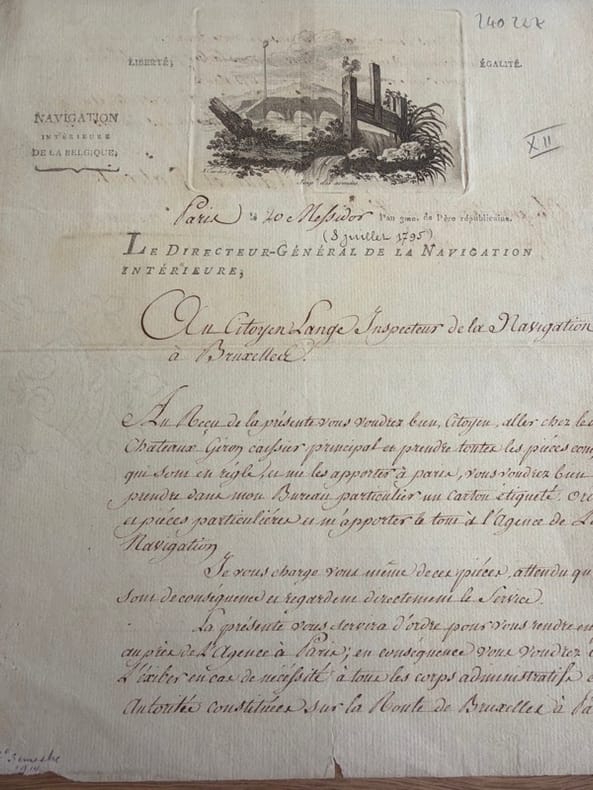 240 267
LIBERTÉ,
ÉGALITÉ.
NAVIGATION
INTÉRIEURE
DE LA BELGIQUE,
XII
Paris le 20 Messidor l'an 3me. de l'ère républicaine.
(8 juillet 1795)
LE DIRECTEUR-GÉNÉRAL DE LA NAVIGATION
INTÉRIEURE,
Au Citoyen Lange Inspecteur de la Navigation
à Bruxelles.
Au Reçu de la présente vous voudrez bien, Citoyen, aller chez le
Chateaux Giron caissier principal et prendre toutes les pièces com
qui sont en règle, et me les apporter à paris, vous voudrez bien
prendre dans mon Bureau particulier un carton étiqueté. Ord
et pièces particulières et m'apporter le tout à l'Agence de La
Navigation
Je vous charge vous même de ces pièces, attendu qu
sont de conséquence et regardent directement le Service.
La présente vous servira d'ordre pour vous rendre en
auprès de L'Agence à Paris; en conséquence vous voudrez
L'éxiber en cas de nécéssité à tous les corps administratifs
Autorités constituées sur la Route de Bruxelles à Pa
semestre